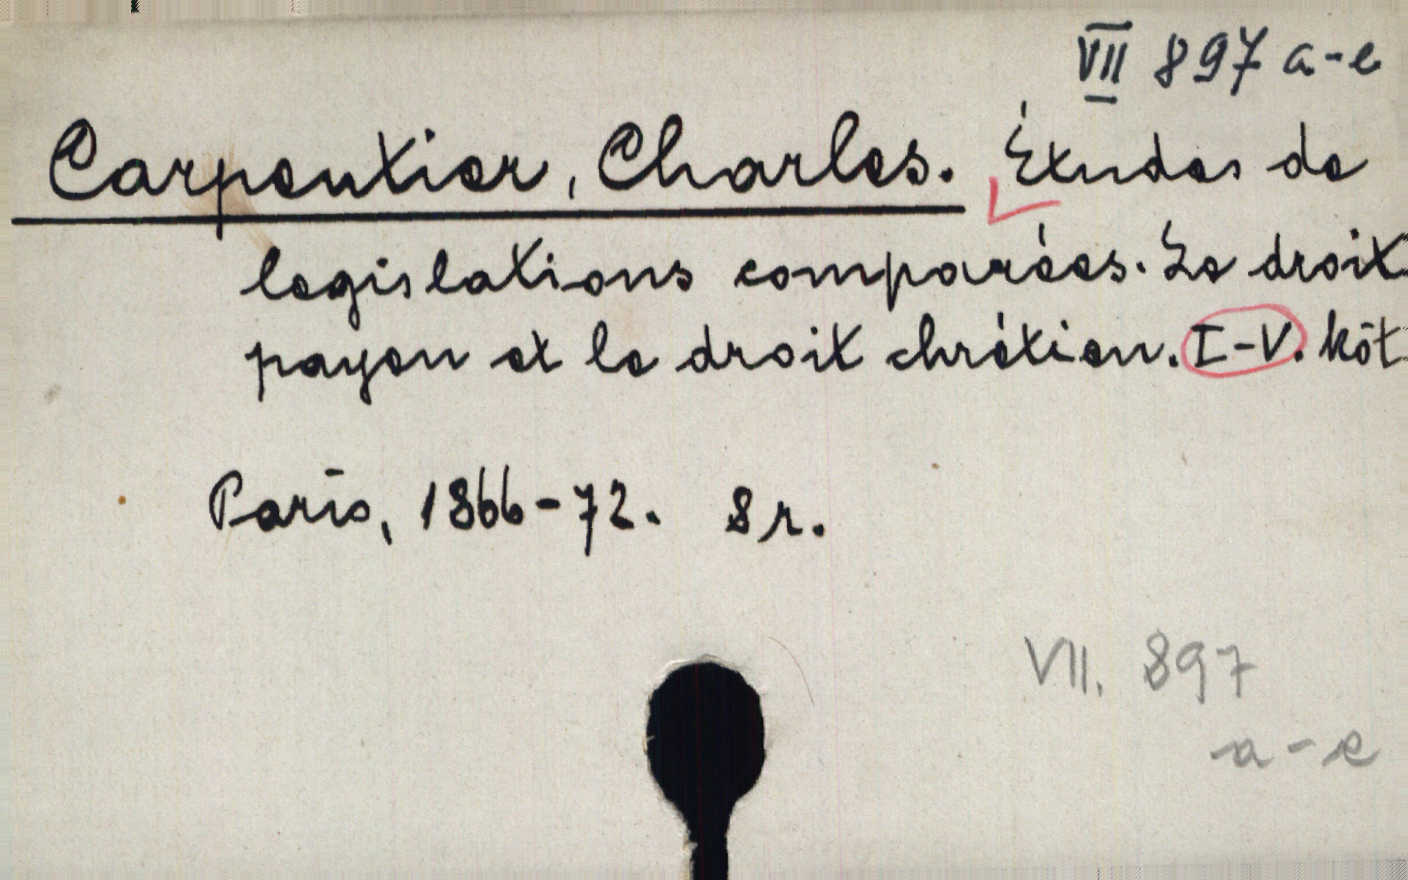 VII 897 a-e
Carpentier, Charles. Études de
legislations comparées. Le droit
payen et le droit chrétien. I-V. köt
Paris, 1866-72. 8 r.
VII. 897
a-e